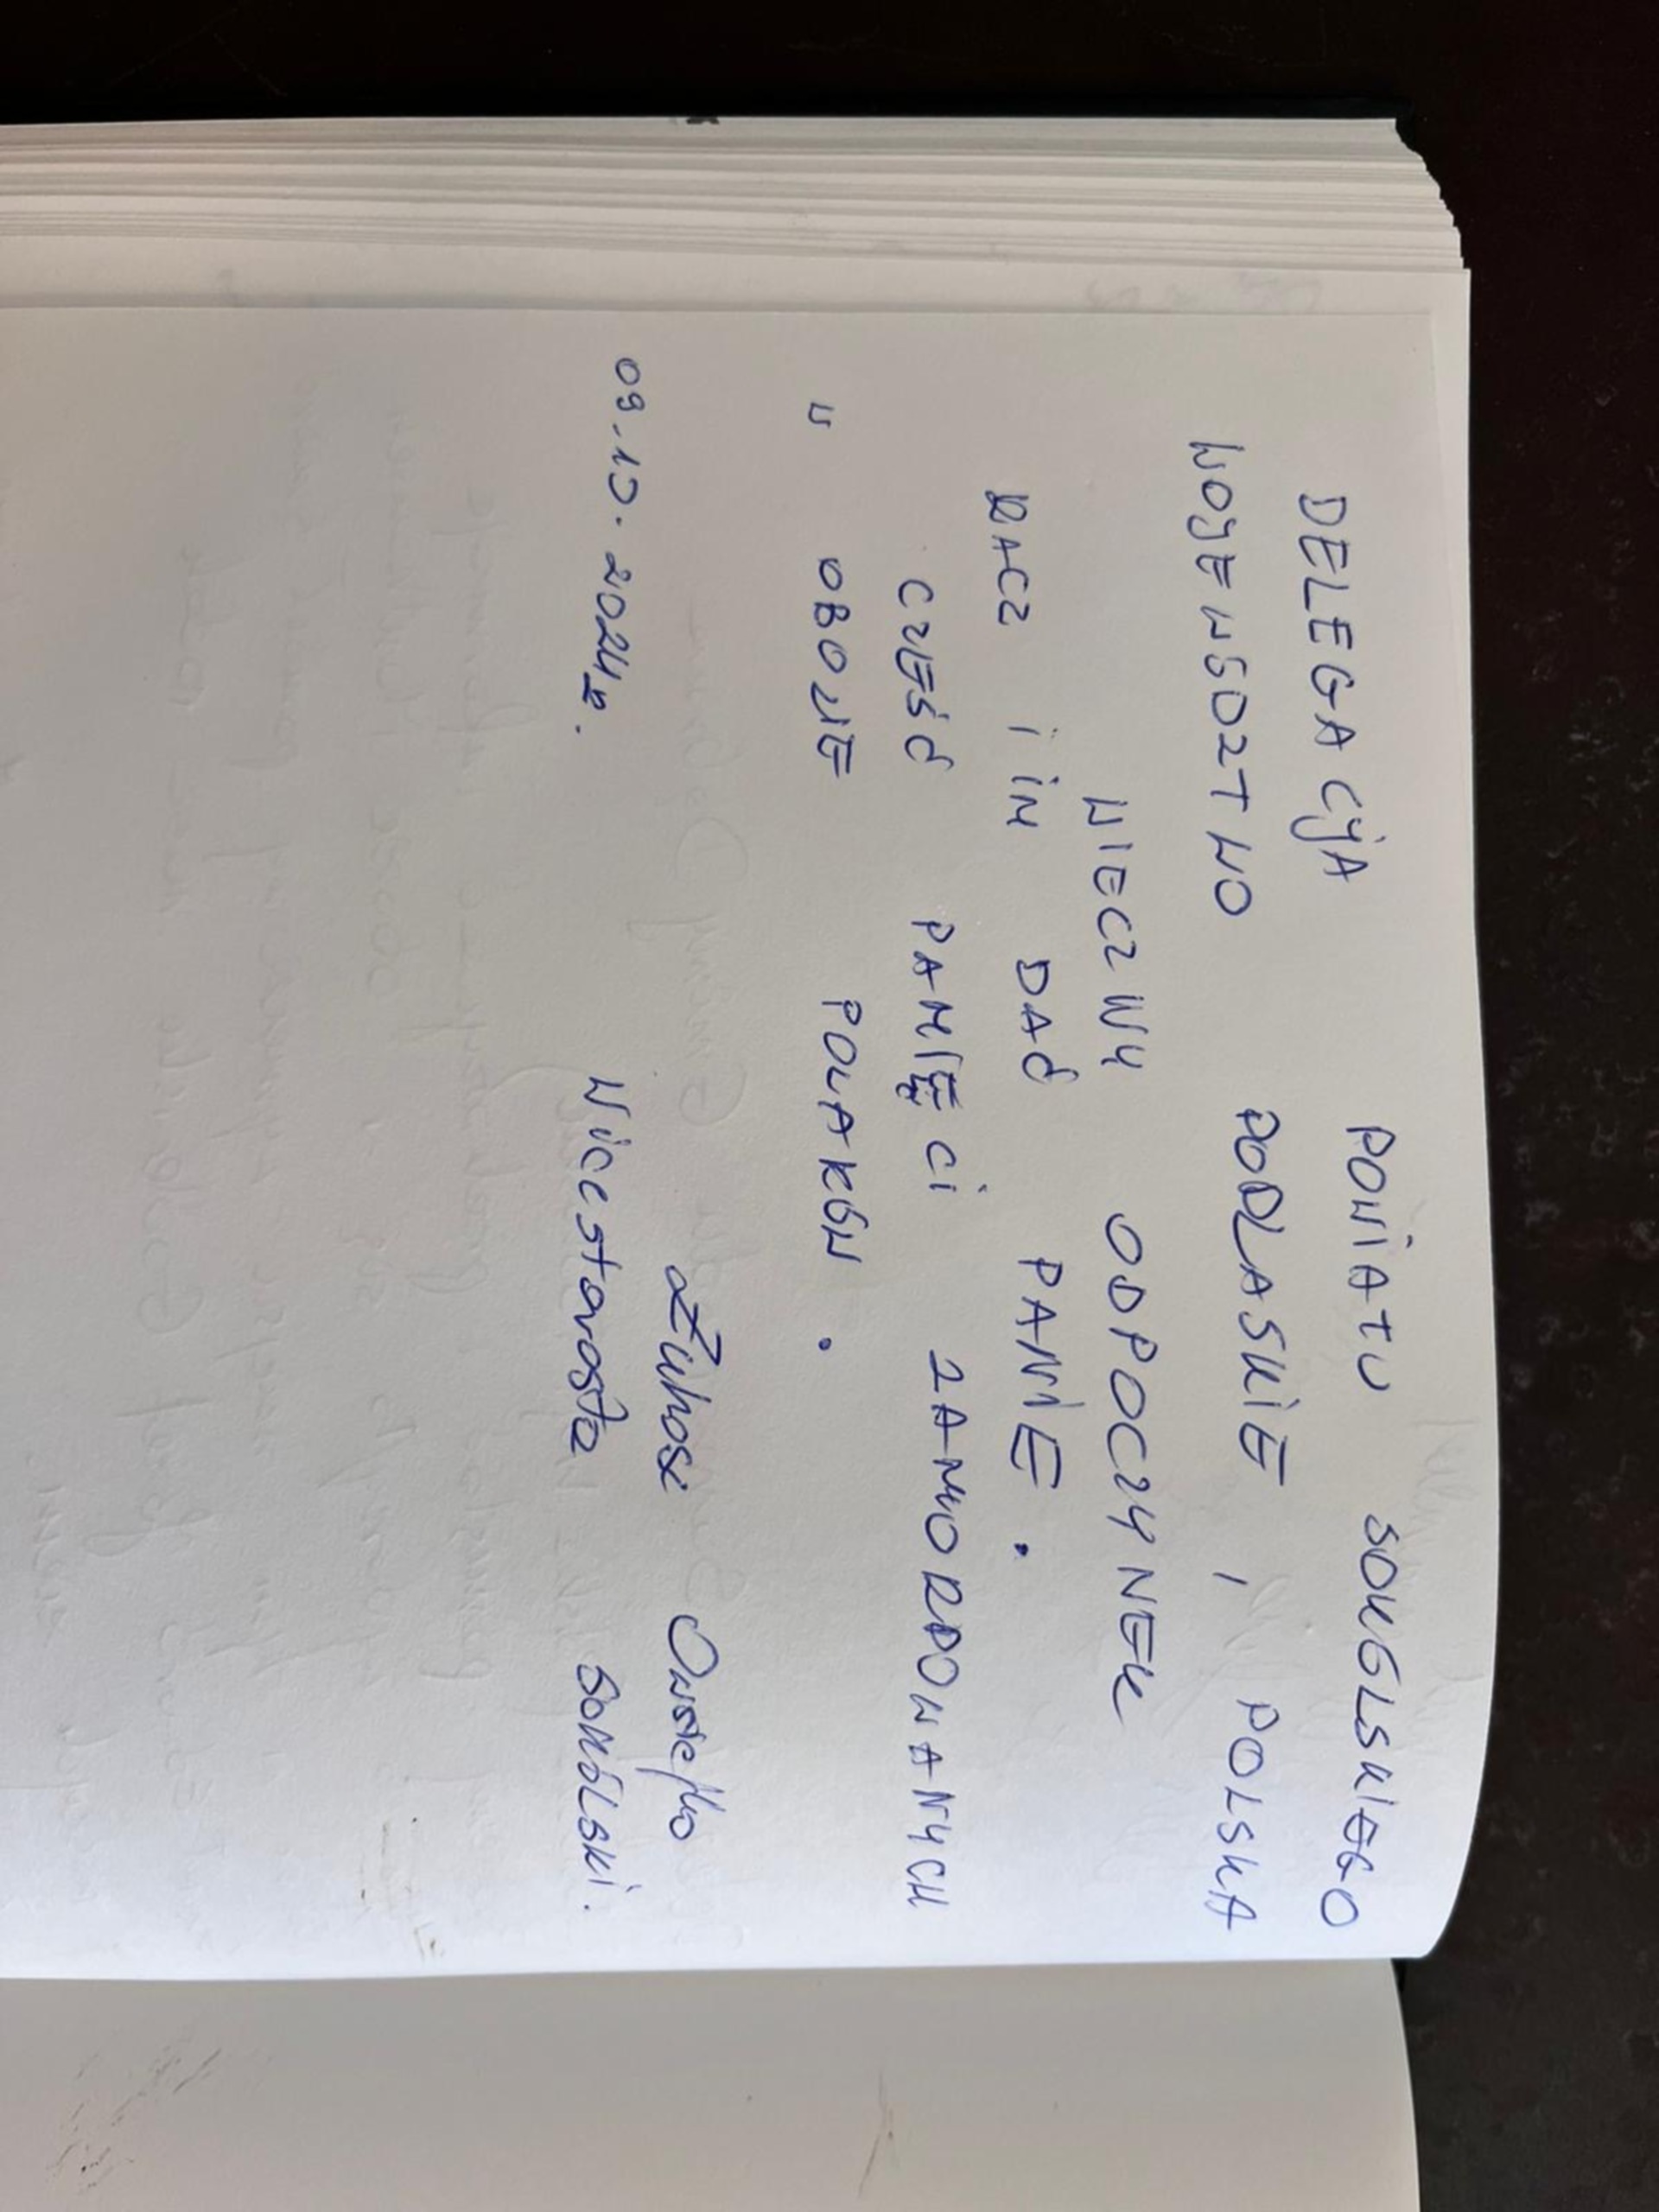 DELEGACJA POWIATU SOKÓLSKIEGO
WOJEWSÓZTWO PODLASKIE, POLSKA
WIECZNY ODPOCZYNEK
RACZ iiM DAĆ PANiE.
CZEŚĆ PAMIĘCi ZAMORDOWANYCH
W OBOZIE POLAKÓW.
09.10.2024r.
Wicestarosta SOKÓLSKi.